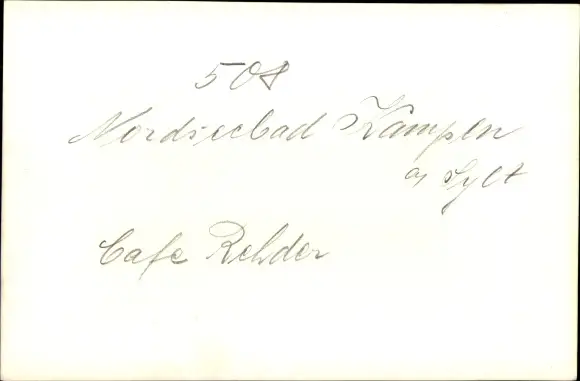 508
Nordseebad Kampen
a/ Sylt
Cafe Rehder